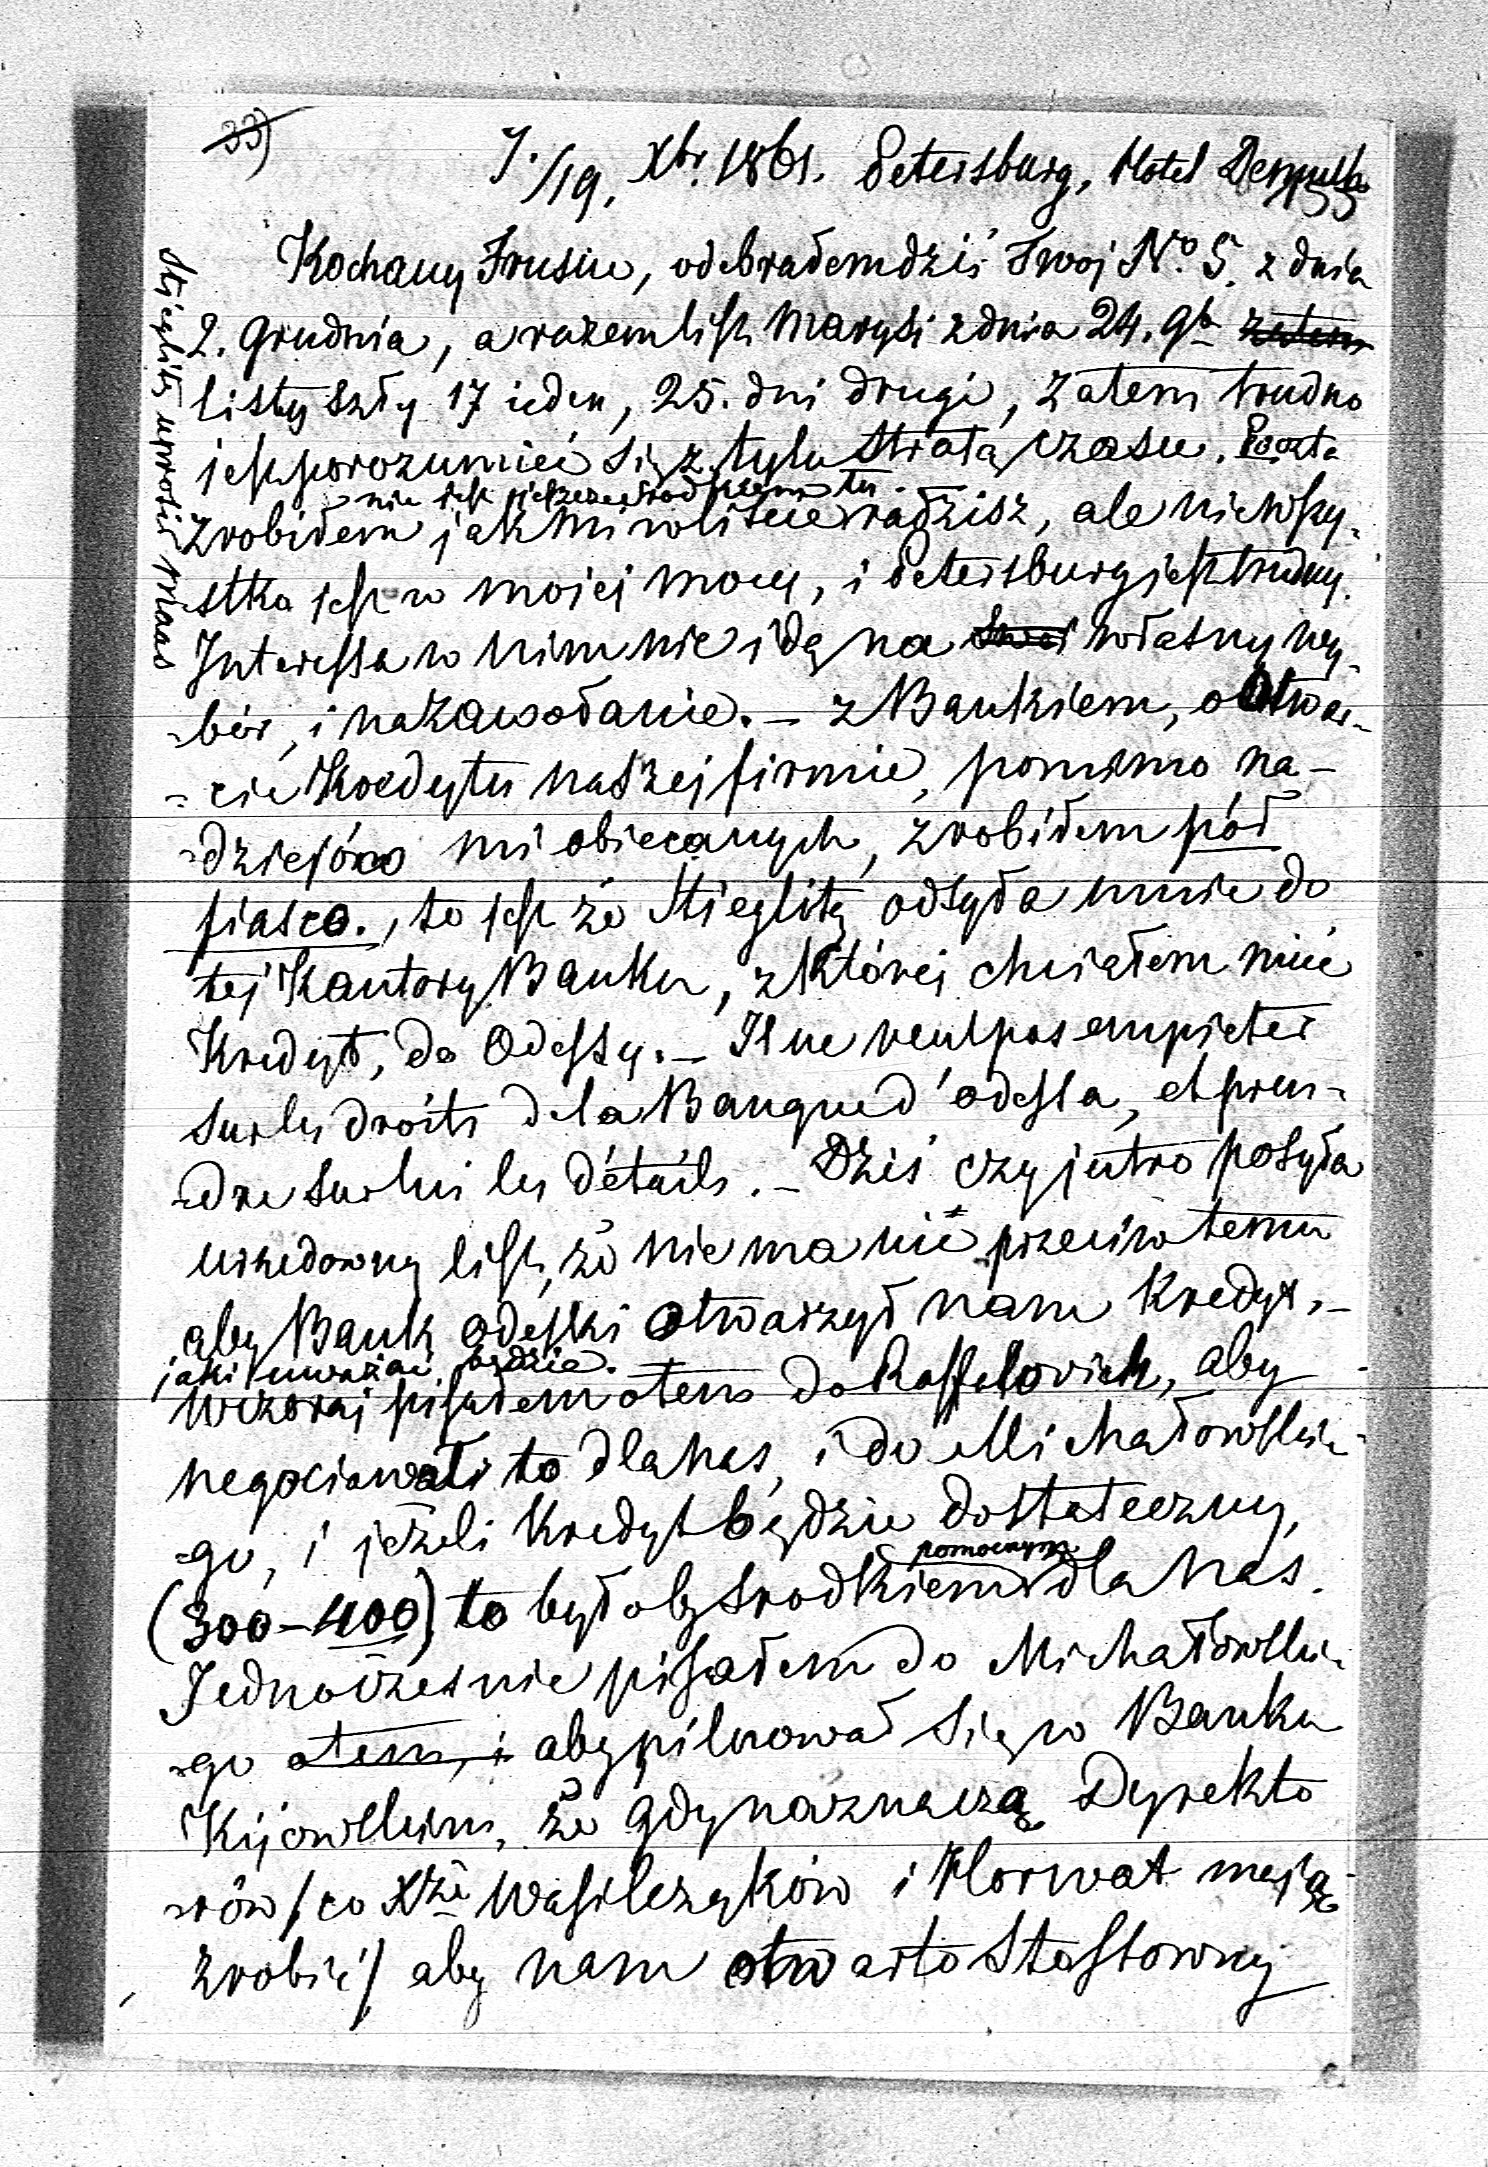 33)
7./19. Xbr. 1861. Petersburg, Hotel Demuth
55
Kochany Frusiu, odebrałem dziś Twoj No. 5. z dnia
2. Grudnia, a razem list Marysi z dnia 24. 9b zatem
listy szły 17 ieden, 25. dni drugi, zatem trudno
jest porozumieć się z tylu stratą czasu. Poczta
nie jest jeszcze tu.
Zrobiłem jak mi w liscie radzisz, ale niewszy-
stko jest w moiej mocy, i Petersburg jest trudny.
Interessa w nim nie idą na swoi własny wy-
-bór, i na zawołanie. - z Bankiem, o otwar-
-cie Kredytu naszej firmie, pomimo na-
-dziejów mi obiecanych, zrobiłem pół
fiasco., to jest że Stieglitz odsyła mnie do
tej Kantory Banku, z której chciałem mieć
Kredyt, do Odessy. - Il ne veut pas empieter
sur les droits de la Banque d'Odessa, et pren-
-dre sur lui les détails. - Dziś czy jutro posyła
urzedowny list, że nie ma nic przeciw temu
aby Bank Odeski otwarzył nam Kredyt, -
jaki uważać będzie.
Wczoraj pisałem o tem do Raffalovich, aby
negociowali to dla nas, i do Michałowskie-
-go, i jeżeli Kredyt będzie dostateczny,
(300-400) to byłoby srodkiem pomocnym dla nas.
Jednocześnie pisałem do Michałowskie-
-go o tem, i aby pilnował się w Banku
Kijowskim, że gdy naznaczą Dyrekto
-rów / co Xże Wasilczyków i Horwat mają
zrobić / aby nam otwarto stosowny
Stieglitz uprosić Maas